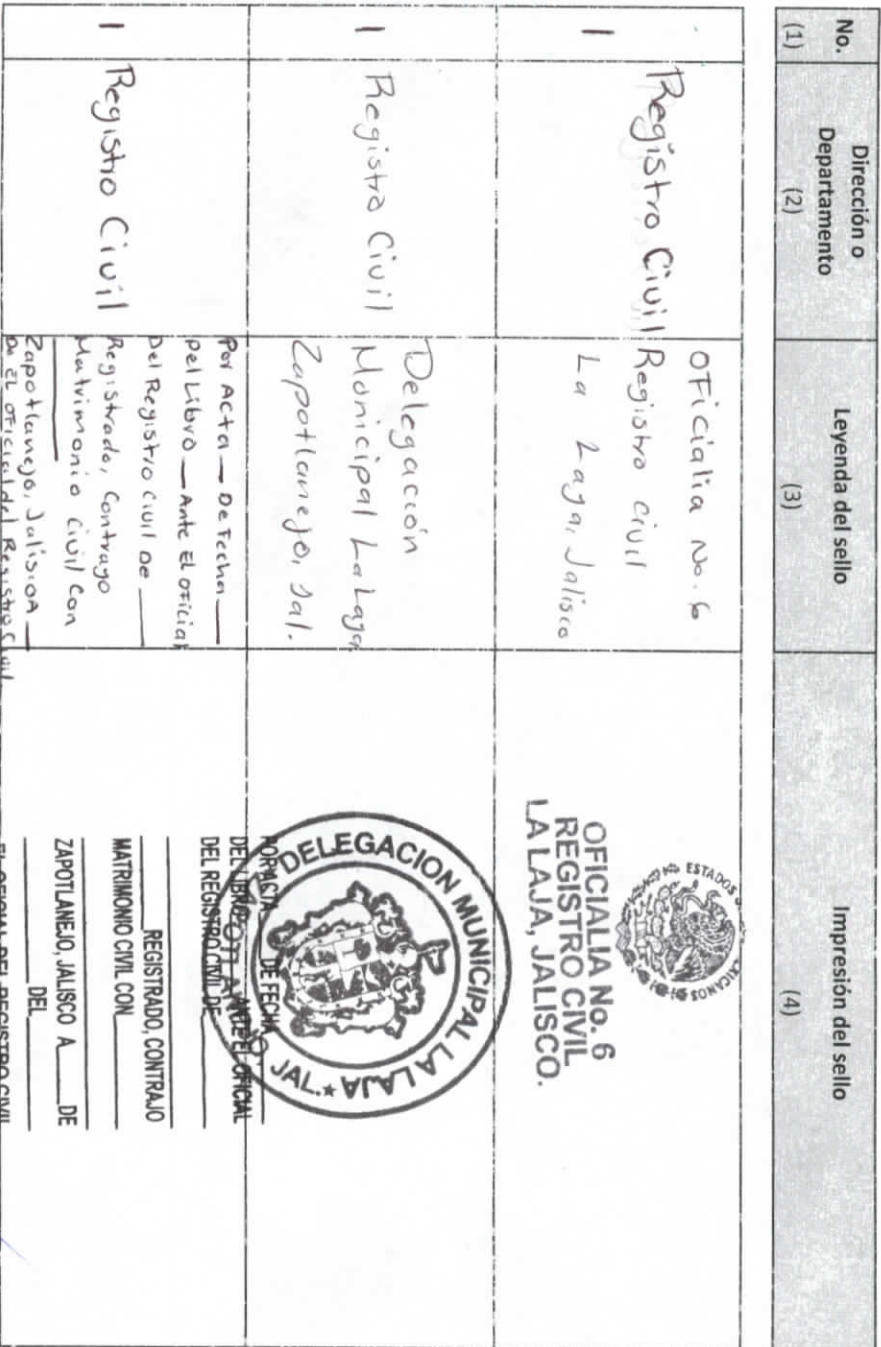 No.
(1)
Dirección o
Departamento
(2)
Leyenda del sello
(3)
Impresión del sello
(4)
1
Registro Civil
Oficialia No. 6
Registro Civil
La Laja, Jalisco
ESTADOS
OFICIALIA No. 6
REGISTRO CIVIL
LA LAJA, JALISCO.
1
Registro Civil
Delegación
Municipal La Laja
Zapotlanejo, Jal.
DELEGACION MUNICIPAL LA LAJA
JAL.
1
Registro Civil
Por Acta — De Fecha —
Del Libro — Ante El oficial
Del Registro Civil De —
Registrado, Contrajo
Matrimonio Civil Con
Zapotlanejo, Jalisco A —
De El oficial del Registro Civil
POR ACTA DE FECHA
DEL LIBRO ANTE EL OFICIAL
DEL REGISTRO CIVIL DE
REGISTRADO, CONTRAJO
MATRIMONIO CIVIL CON
ZAPOTLANEJO, JALISCO A DE
DEL
EL OFICIAL DEL REGISTRO CIVIL